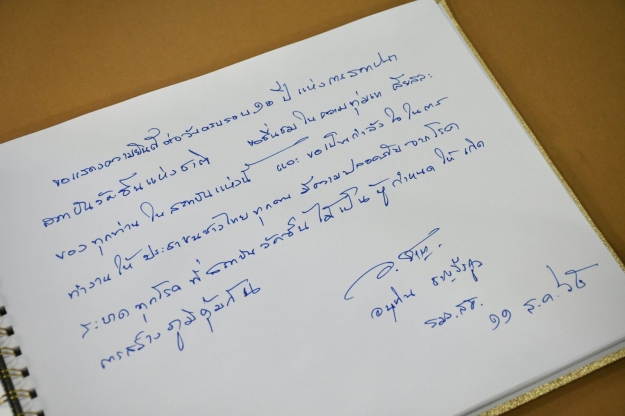 ขอแสดงความยินดี ต่อวันครบรอบ ๑๒ ปี แห่งการสถาปนา
สถาบันวัคซีนแห่งชาติ ขอชื่นชมในความทุ่มเท เสียสละ
ของ ทุกท่าน ใน สถาบันแห่งนี้ และ ขอเป็นกำลังใจในการ
ทำงาน ให้ ประชาชนชาวไทย ทุกคน มีความปลอดภัย จากโรค
ระบาด ทุกโรค ที่ สถาบัน วัคซีน ได้เป็น ผู้กำหนด ให้ เกิด
การสร้าง ภูมิคุ้มกัน
อนุทิน ชาญวีรกูล
รมว.สธ.
๑๑ ต.ค. ๖๕